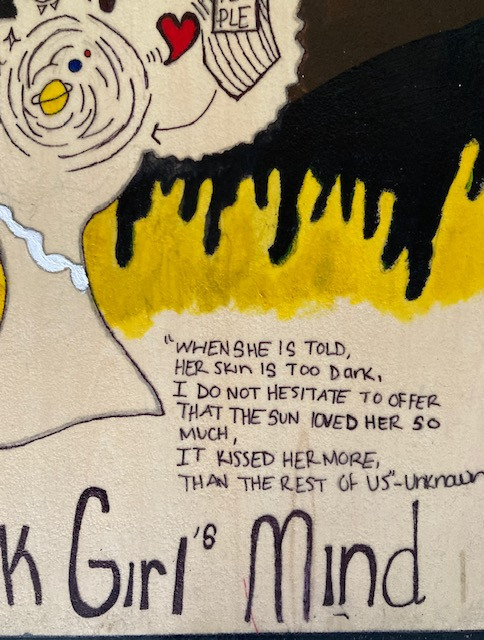 PLE
"WHEN SHE IS TOLD,
HER SKIN IS TOO DARK,
I DO NOT HESITATE TO OFFER
THAT THE SUN LOVED HER SO
MUCH,
IT KISSED HER MORE,
THAN THE REST OF US"-UNKNOWN
K Girl's Mind